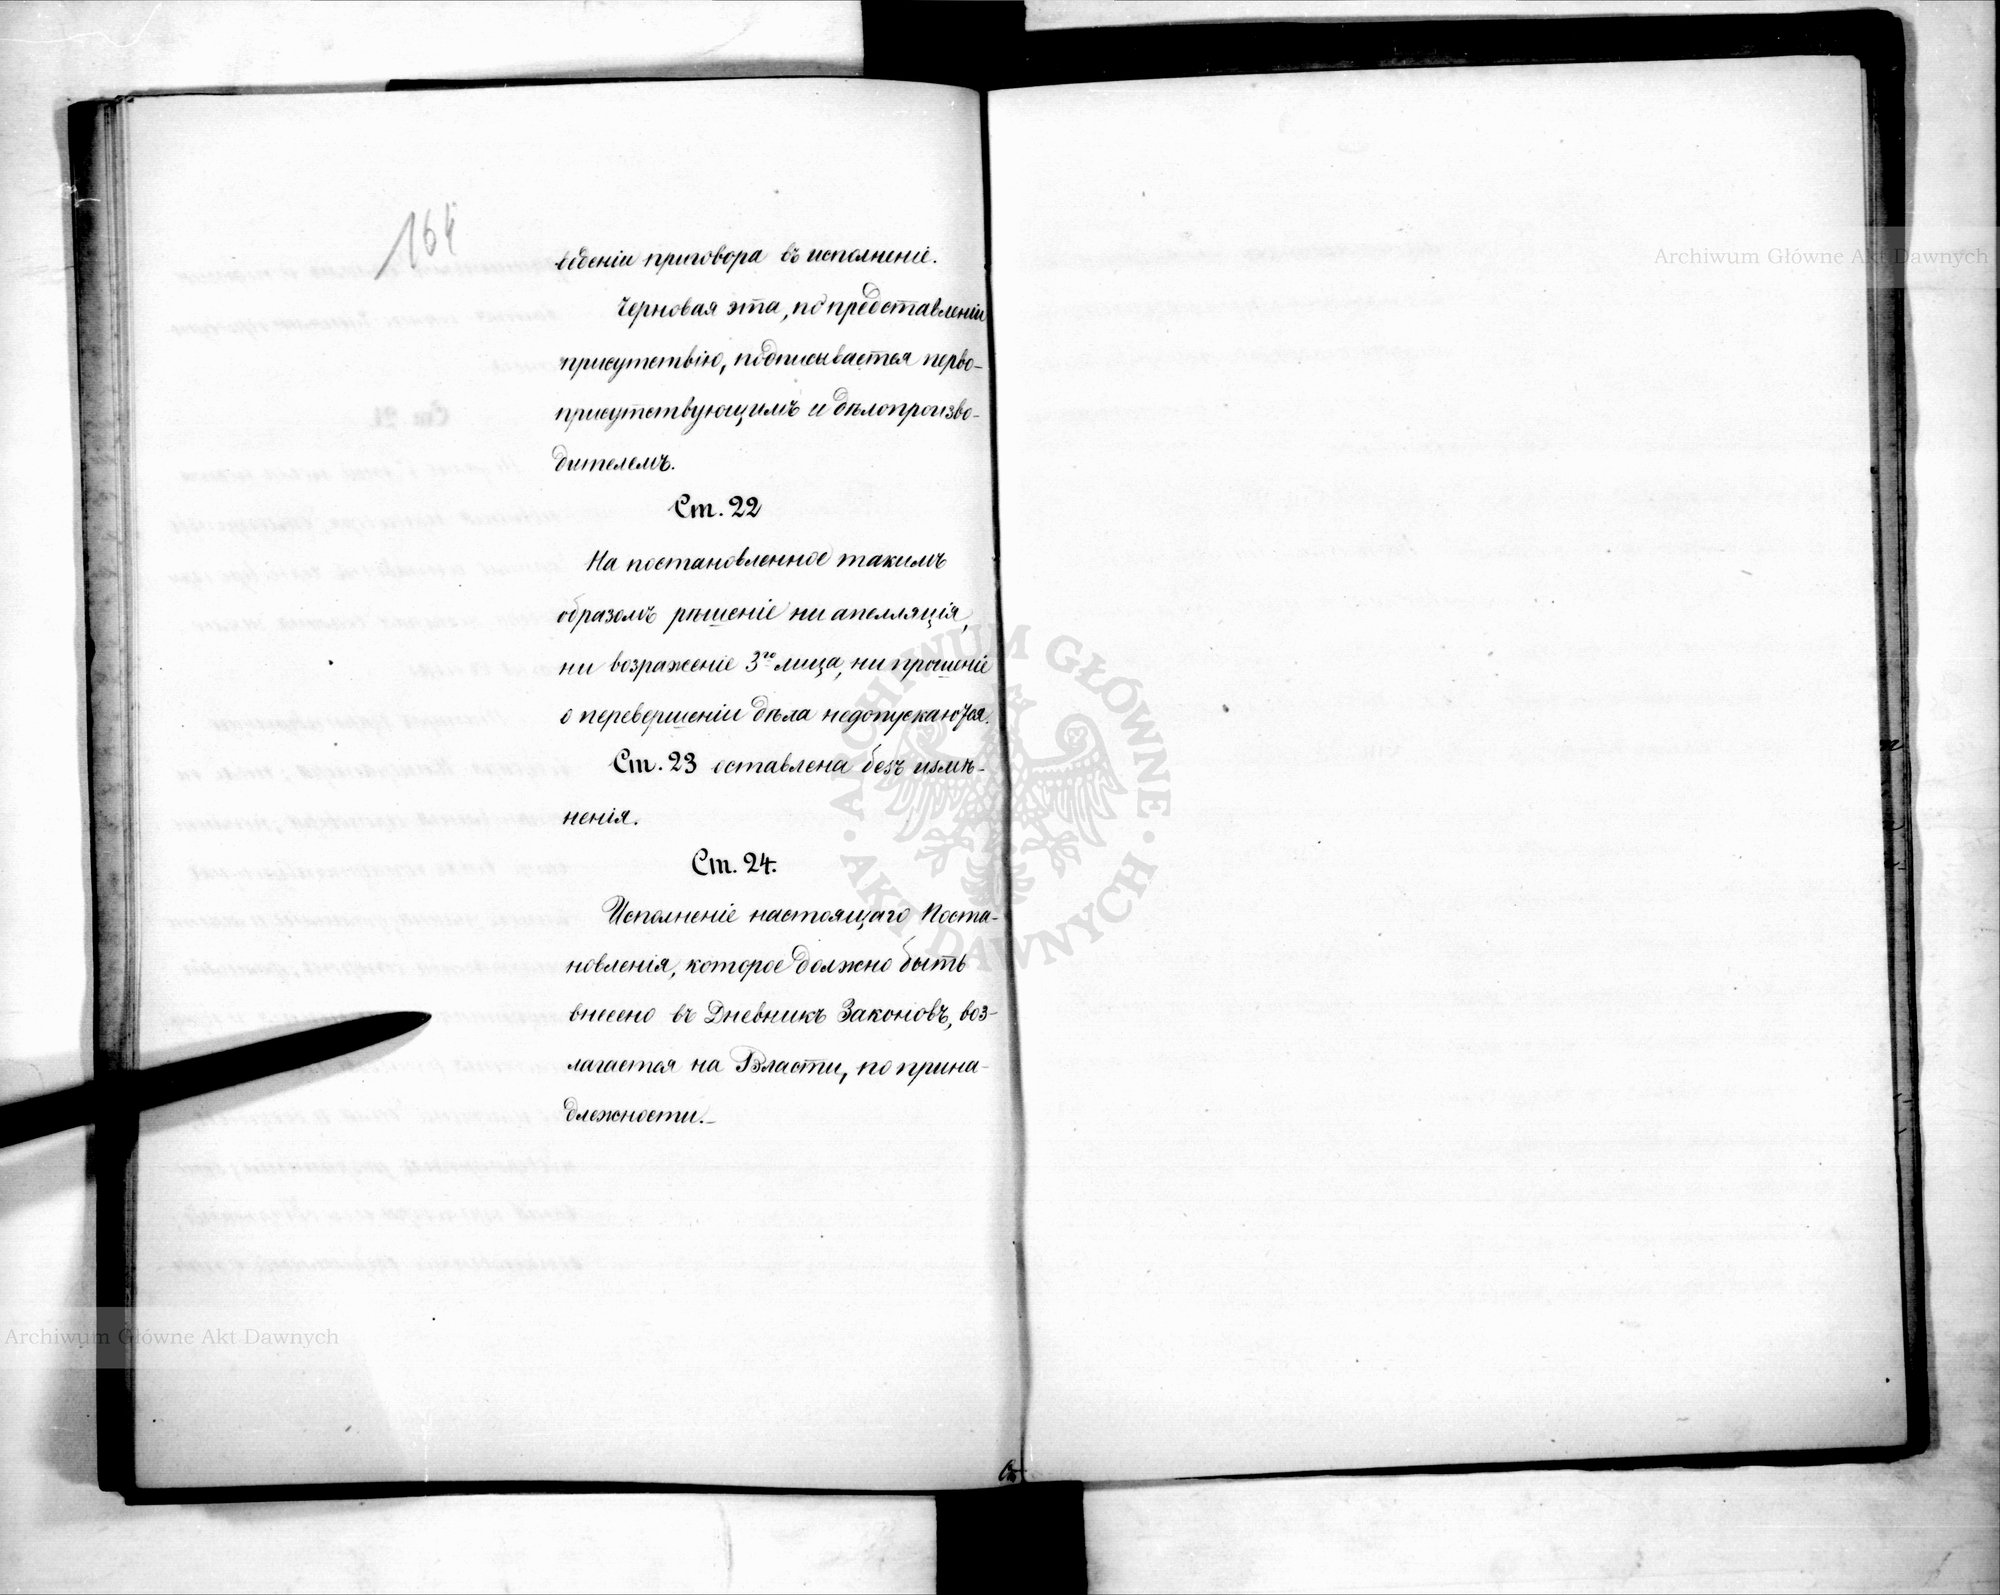 164
веденіи приговора въ исполненіе.
Черновая эта, по представленіи
присутствію, подписывается перво-
присутствующимъ и дѣлопроизво-
дителемъ.
Ст. 22
На постановленное такимъ
образомъ рѣшеніе ни апелляція,
ни возраженіе 3го лица, ни прошеніе
о перевершеніи дѣла недопускаются.
Ст. 23 оставлена безъ измѣ-
ненія.
Ст. 24.
Исполненіе настоящаго Поста-
новленія, которое должно быть
внесено въ Дневникъ Законовъ, воз-
лагается на Власти, по прина-
длежности.
Archiwum Główne Akt Dawnych
Archiwum Główne Akt Dawnych
ARCHIWUM GŁÓWNE
AKT DAWNYCH